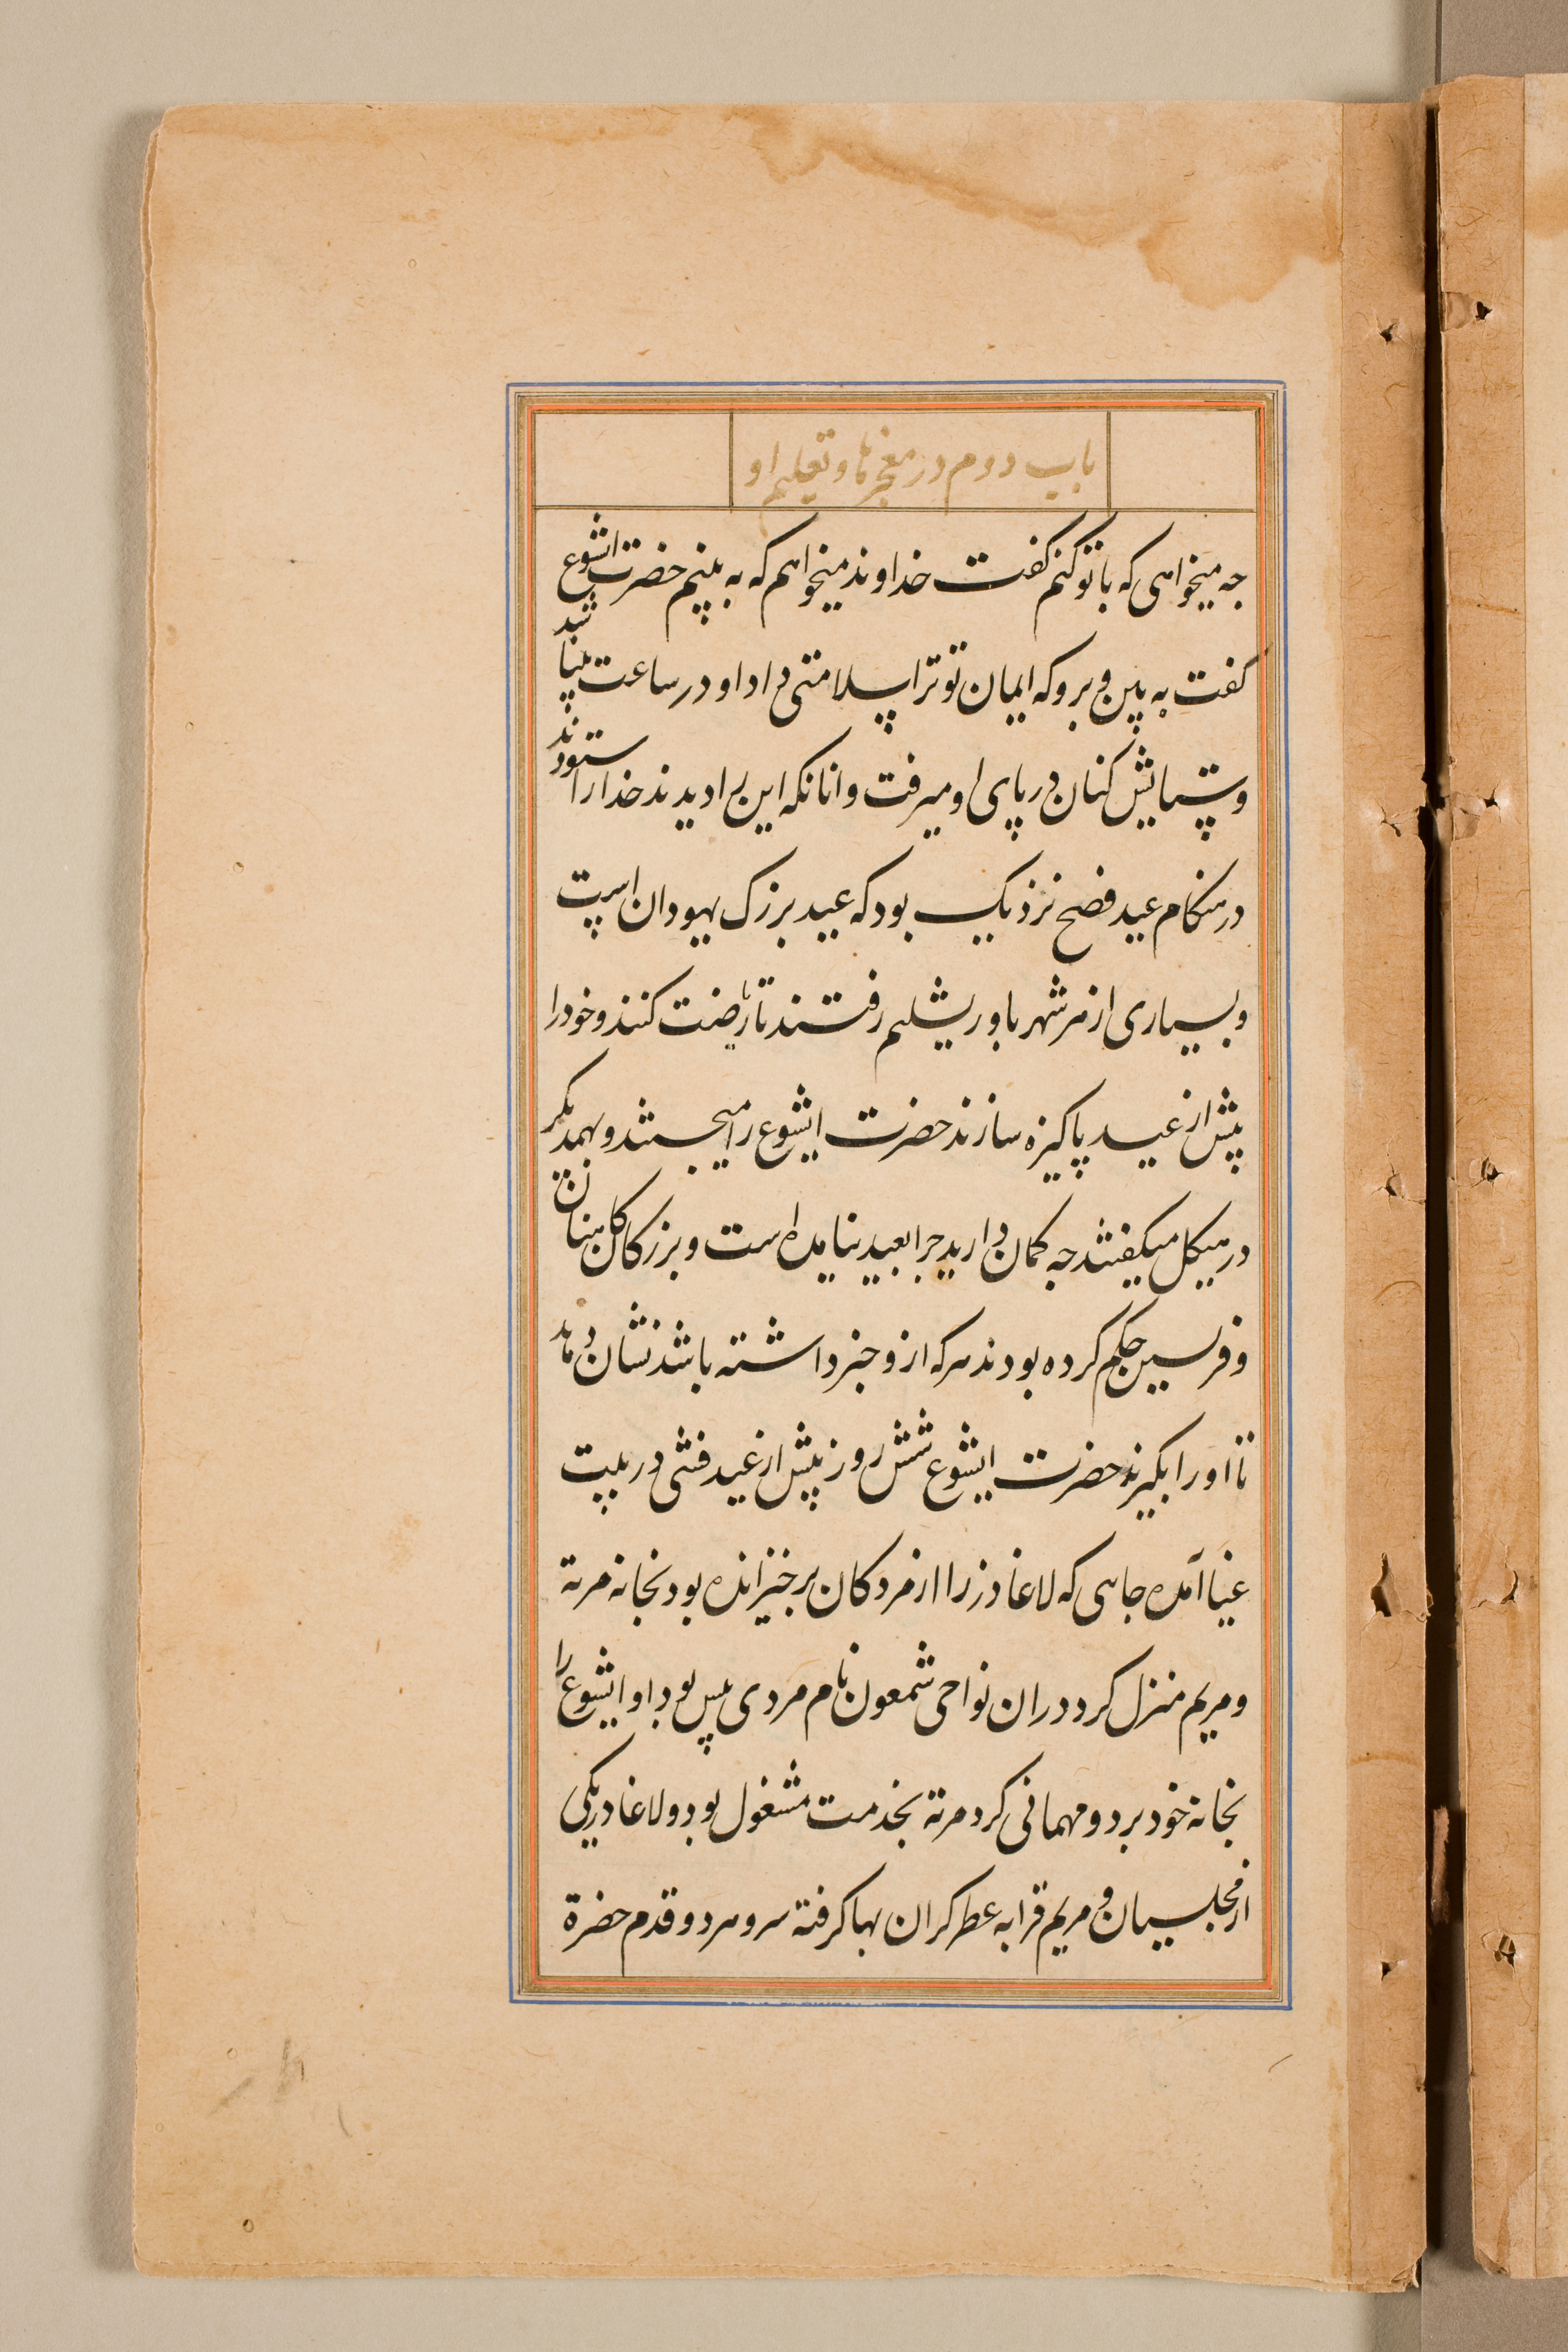 باب دوم در معجزها و تعلیم او
چه میخواهی که با تو کنم گفت خداوند میخواهم که به بینم حضرت ایشوع
گفت به بین و برو که ایمان تو ترا سلامتی داد او در ساعت بینا شد
و ستایش کنان در پای او میرفت و انانکه این را دیدند خدا را ستودند
در هنکام عید فصح نزدیک بود که عید بزرک یهودان است
و بسیاری از هر شهر باوریشلیم رفتند تا ریاضت کنند و خود را
پیش از عید پاکیزه سازند حضرت ایشوع را میجستند و بهمدیکر
در هیکل میکفتند چه کمان دارید چرا بعید نیامده است و بزرکان کاهنان
و فرسیین حکم کرده بودند هر که ازو خبر داشته باشد نشان دهد
تا او را بکیرند حضرت ایشوع شش روز پیش از عید فشی در بیت
عنیا آمده جاهی که لاغادزر را از مردکان برخیزانده بود بخانه مرته
و مریم منزل کرد دران نواحی شمعون نام مردی پیس بود او ایشوع را
بخانه خود برد و مهمانی کرد مرته بخدمت مشغول بود و لاغادر یکی
از مجلسیان و مریم قرابه عطر کران بها کرفته سر و هر دو قدم حضرة